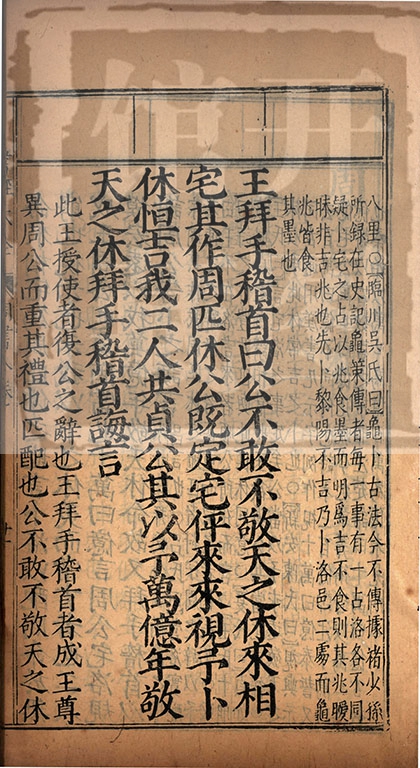 八里○臨川吳氏曰龜卜古法今不傳據褚少孫
所錄在史記龜策傳者每一事有一占洛各不同
疑卜宅之占以兆食墨而明爲吉不食則其兆曖
昧非吉兆也先卜黎陽不吉乃卜洛邑二處而龜
兆皆食
其墨也
王拜手稽首曰公不敢不敬天之休來相
宅其作周匹休公既定宅伻來來視予卜
休恒吉我二人共貞公其以予萬億年敬
天之休拜手稽首誨言
此王授使者復公之辭也王拜手稽首者成王尊
異周公而重其禮也匹配也公不敢不敬天之休